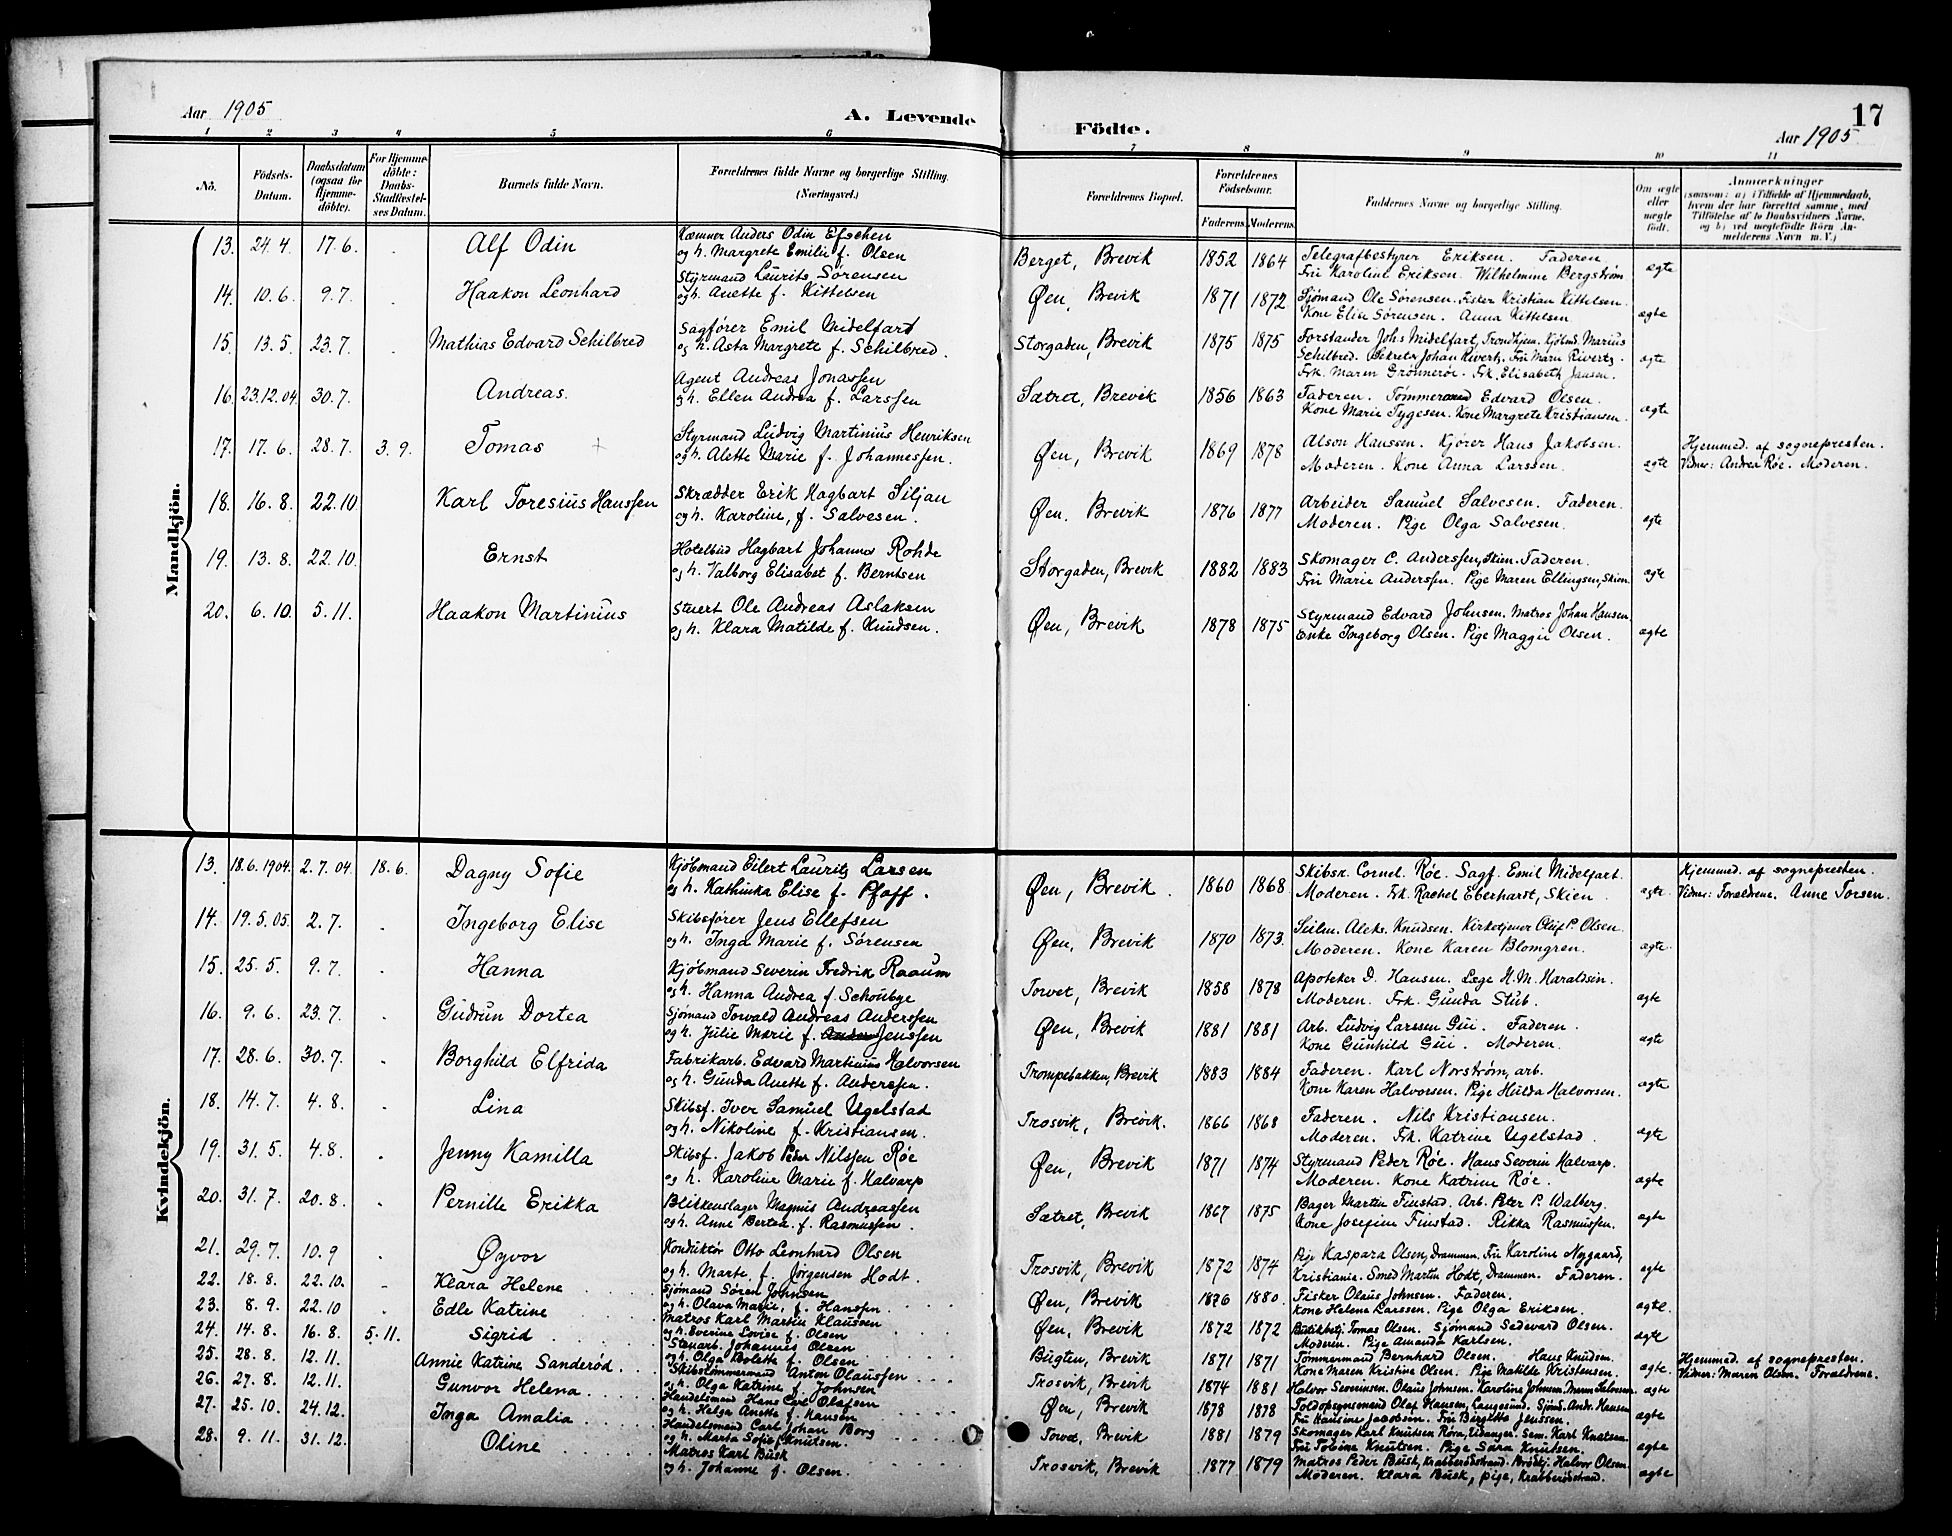 Aar 1905
A. Levende
Födte.
17
Aar 1905
1 2 3 4 5 6 7 8 9 10 11
No.
Födsels-
Datum.
Daabsdatum
(ogsaa for
Hjemme-
döbte).
For Hjemme-
döbte:
Daabs-
Stadfæstel-
ses Datum.
Barnets fulde Navn.
Forældrenes fulde Navne og borgerlige Stilling.
(Næringsvei.)
Forældrenes Bopæl.
Forældrenes
Födselsaar.
Faderens. Moderens.
Faddernes Navne og borgerlige Stilling.
Om ægte
eller
uægte
födt.
Anmærkninger
(saasom: a) i Tilfælde af Hjemmedaab,
hvem der har forrettet samme, med
Tilföielse af to Daabsvidners Navne,
og b) ved uægtefödte Börn An-
melderens Navn m. V.)
Mandkjön.
13. 24.4. 17.6. Alf Odin
Kæmner Anders Odin Efschen
og h. Margrete Emilie f. Olsen
Berget, Brevik 1852 1864
Telegrafbestyrer Eriksen. Faderen
Fru Karoline Eriksen. Wilhelmine Bergstrøm
ægte
14. 10.6. 9.7. Haakon Leonhard
Styrmand Laurits Sørensen
og h. Anette f. Kittelsen
Øen, Brevik 1871 1872
Sjömand Ole Sørensen. Fisker Kristian Kittelsen.
Kone Elise Sørensen. Anna Kittelsen.
ægte
15. 13.5. 23.7. Mathias Edvard Schilbred
Sagfører Emil Midelfart
og h. Asta Margrete f. Schilbred.
Storgaden, Brevik 1875 1875
Forstander Johs Midelfart, Trondhjem. Kjöbmd. Marius
Schilbred. Sekretær Johan Rivertz. Fru Maru Rivertz.
Frk. Maren Grønnerøe. Frk. Elisabeth Jansen.
ægte
16. 23.12.04. 30.7. Andreas.
Agent Andreas Jonassen
og h. Ellen Andrea f. Larssen
Sætret, Brevik 1856 1863
Faderen. Tømmermand Edvard Olsen.
Kone Marie Tygesen. Kone Margrete Kristiansen.
ægte
17. 17.6. 28.7. 3.9. Tomas +
Styrmand Ludvig Martinius Henriksen
og h. Alette Marie f. Johannessen.
Øen, Brevik 1869 1878
Alson Hanssen. Kjører Hans Jakobsen.
Moderen. Kone Anna Larssen.
ægte
Hjemmed. af sognepresten.
Vidner: Andrea Røe. Moderen.
18. 16.8. 22.10 Karl Toresius Hanssen
Skrædder Erik Hagbart Siljan
og h. Karoline, f. Salvesen.
Øen. Brevik 1876 1877
Arbeider Samuel Salvesen. Faderen.
Moderen. Pige Olga Salvesen.
ægte
19. 13.8. 22.10. Ernst
Hotelbud Hagbart Johannes Rohde
og h. Valborg Elisabet f. Berntsen
Storgaden, Brevik 1882 1883
Skomager C. Anderssen, Skien. Faderen.
Fru Marie Anderssen. Pige Maren Ellingsen, Skien.
ægte
20. 6.10. 5.11. Haakon Martinius
Stuert Ole Andreas Aslaksen
og h. Klara Matilde f. Knudsen.
Øen, Brevik 1878 1875
Styrmand Edvard Johnsen. Matros Johan Hansen.
Enke Ingeborg Olsen. Pige Maggie Olsen.
ægte
Kvindekjön.
13. 18.6.1904. 2.7.04. 18.6. Dagny Sofie
Kjöbmand Eilert Lauritz Larsen
og h. Kathinka Elise f. Pfaff.
Øen, Brevik. 1860 1868
Skibsr. Cornel. Røe. Sagf. Emil Midelfart.
Moderen. Frk. Rachel Eberhardt, Skien.
ægte
Hjemmed. af sognepresten.
Vidner: Forældrene. Anne Torsen.
14. 19.5.05. 2.7. Ingeborg Elise
Skibsfører Jens Ellefsen
og h. Inga Marie f. Sørensen
Øen, Brevik 1870 1873.
Seilm. Aleks. Knudsen. Kirketjener Oluf P. Olsen.
Moderen. Kone Karen Blomgren.
ægte.
15. 25.5. 9.7. Hanna
Kjöbmand Severin Fredrik Raaum
og h. Hanna Andrea f. Schoubye
Torvet, Brevik 1858 1878
Apoteker D. Hansen. Læge H. M. Haraldsen.
Moderen. Frk. Gunda Stub.
ægte
16. 9.6. 23.7. Gudrun Dortea
Sjömand Torvald Andreas Anderssen
og h. Julie Marie f. Jenssen
Øen, Brevik 1881 1881
Arb. Ludvig Larssen Gui. Faderen.
Kone Gunhild Gui. Moderen.
ægte
17. 28.6. 30.7. Borghild Elfrida
Fabrikarb. Edvard Martinius Halvorsen
og h. Gunda Anette f. Anderssen.
Trompebakken, Brevik 1883 1884
Faderen. Karl Norstrøm, arb.
Kone Karen Halvorsen. Pige Hulda Halvorsen.
ægte
18. 14.7. 4.8. Lina
Skibsf. Iver Samuel Ugelstad
og h. Nikoline f. Kristiansen.
Trosvik, Brevik. 1866 1868
Faderen. Nils Kristiansen.
Moderen. Frk. Katrine Ugelstad.
ægte
19. 31.5. 4.8. Jenny Kamilla
Skibsf. Jakob Peder Nilssen Røe
og h. Karoline Marie f. Halvarp
Øen, Brevik 1871 1874
Styrmand Peder Røe. Hans Severin Halvarp.
Moderen. Kone Katrine Røe.
ægte
20. 31.7. 20.8. Pernille Erikka
Blikkenslager Magnus Andreassen
og h. Anne Bertea. f. Rasmussen.
Sætret, Brevik 1867 1875
Bager Martin Finstad. Arb. Peter P. Walberg.
Kone Josefine Finstad. Rikka Rasmussen.
ægte
21. 29.7. 10.9 Øgvor
Konduktør Otto Leonhard Olsen
og h. Marte f. Jørgensen Hodt.
Trosvik, Brevik 1872 1874
Pige Kaspara Olsen, Drammen. Fru Karoline Nygaard,
Kristiania. Smed Martin Hodt, Drammen. Faderen.
ægte
22. 18.8. 22.10. Klara Helene
Sjömand Søren Johnsen
og h. Olava Marie, f. Hanssen
Øen, Brevik 1876 1880.
Fisker Olaus Johnsen. Faderen.
Kone Helene Larssen. Pige Olga Eriksen.
ægte.
23. 8.9. 22.10 Edle Katrine
Matros Karl Martin Klaussen
og h. Everine Lovise f. Olsen
Øen, Brevik 1872 1872
Butikbetj. Tomas Olsen. Sjømand Sedevard Olsen.
Moderen. Pige Amanda Karlsen.
ægte
24. 14.8. 16.8. 5.11. Sigrid
Stenarb. Johannes Olsen
og h. Olga Bolette f. Olsen
Bugten, Brevik 1871 1871
Tømmermand Bernhard Olsen. Hans Knudsen.
Kone Maren Kristine Olsen. Pige Matilde Kristensen.
ægte.
Hjemmed. af sognepresten.
Vidner: Maren Olsen. Forældrene.
25. 28.8. 12.11. Annie Katrine Sanderød
Skibstømmermand Anton Olaussen
og h. Olga Katrine f. Johnsen
Trosvik, Brevik 1874 1881
Halvor Severinsen. Olaus Johnsen. Karoline Johnsen.
ægte
26. 27.8. 12.11. Gunvor Helena
Handelsmand Hans Carl Olafsen
og h. Helga Anette f. Hansen
Øen, Brevik 1878 1878
Toldopsynsmand Olaf Hansen, Langesund. Sjömd. Andr. Hansen
Fru Hansine Jacobsen. Fru Birgitta Jenssen.
ægte
27. 25.10. 24.12. Inga Amalia
Handelsmand Carl Johan Borg
og h. Marta Sofie f. Knutsen.
Torvet, Brevik 1881 1879
Skomager Karl Knutsen Röra, Eidanger. Sem. Karl Knutsen.
Fru Tobine Knutsen. Pige Sara Knutsen.
ægte
28. 9.11. 31.12. Oline
Matros Karl Busk
og h. Johanne f. Olsen.
Trosvik, Brevik 1877 1879
Matros Peder Busk, Krabberødstrand. Brødkj. Halvor Olsen.
Moderen. Klara Busk, pige, Krabberødstrand.
ægte